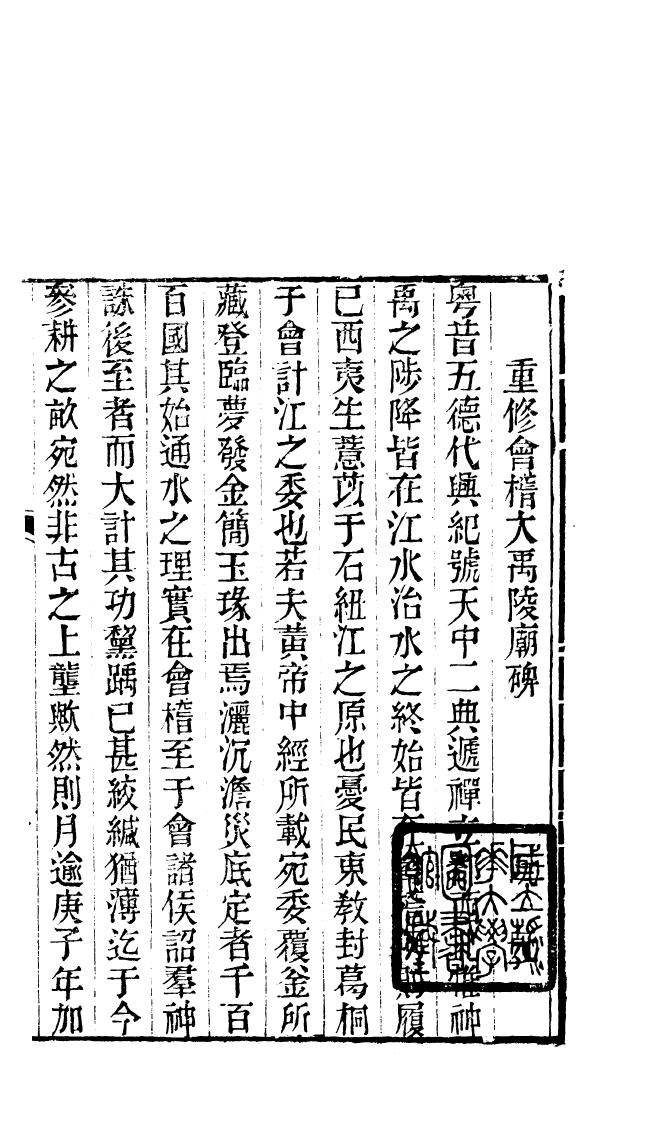 重修會稽大禹陵廟碑
粵昔五德代興紀號天中二典遞禪神
禹之陟降皆在江水治水之終始皆履
已西夷生薏苡于石紐江之原也憂民東教封葛桐
于會計江之委也若夫黃帝中經所載宛委覆釜所
藏登臨夢發金簡玉瑑出焉灑沉澹災底定者千百
百國其始通水之理實在會稽至于會諸侯詔羣神
誅後至者而大計其功黧踽已甚絞緘猶薄迄于今
參耕之畝宛然非古之上壟歟然則月逾庚子年加